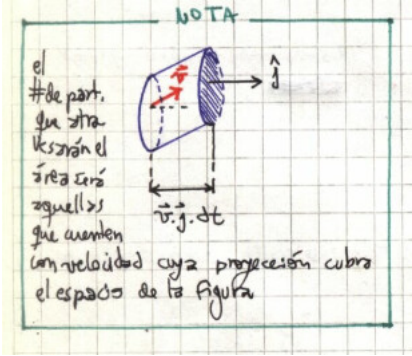 NOTA
el
#de part.
que atra
vesarán el
área será
aquellas
que cuenten
con velocidad cuya proyección cubra
el espacio de la figura
v⃗
ĵ
v⃗.j⃗.dt